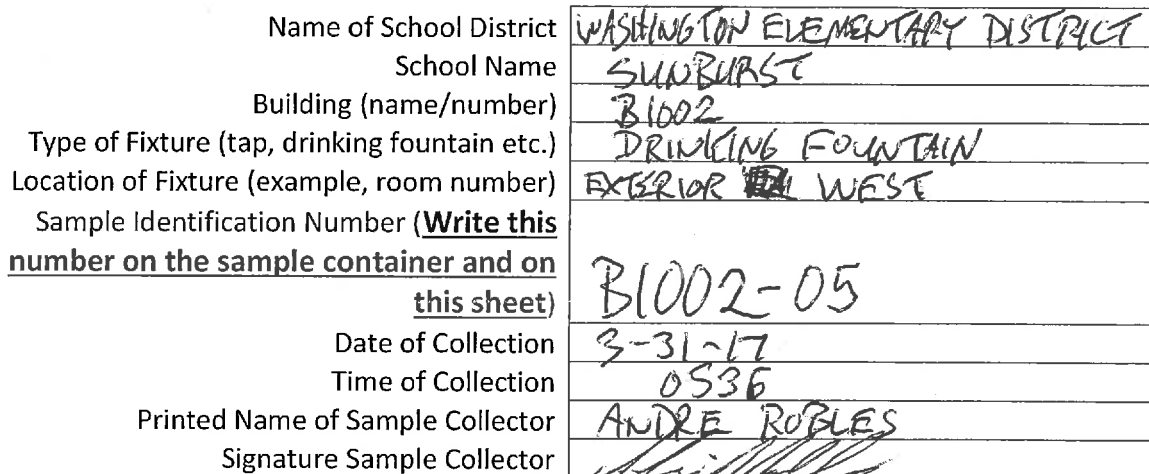 Name of School District WASHINGTON ELEMENTARY DISTRICT
School Name SUNBURST
Building (name/number) B1002
Type of Fixture (tap, drinking fountain etc.) DRINKING FOUNTAIN
Location of Fixture (example, room number) EXTERIOR WEST
Sample Identification Number (Write this
number on the sample container and on
this sheet) B1002-05
Date of Collection 3-31-17
Time of Collection 0536
Printed Name of Sample Collector ANDRE ROBLES
Signature Sample Collector